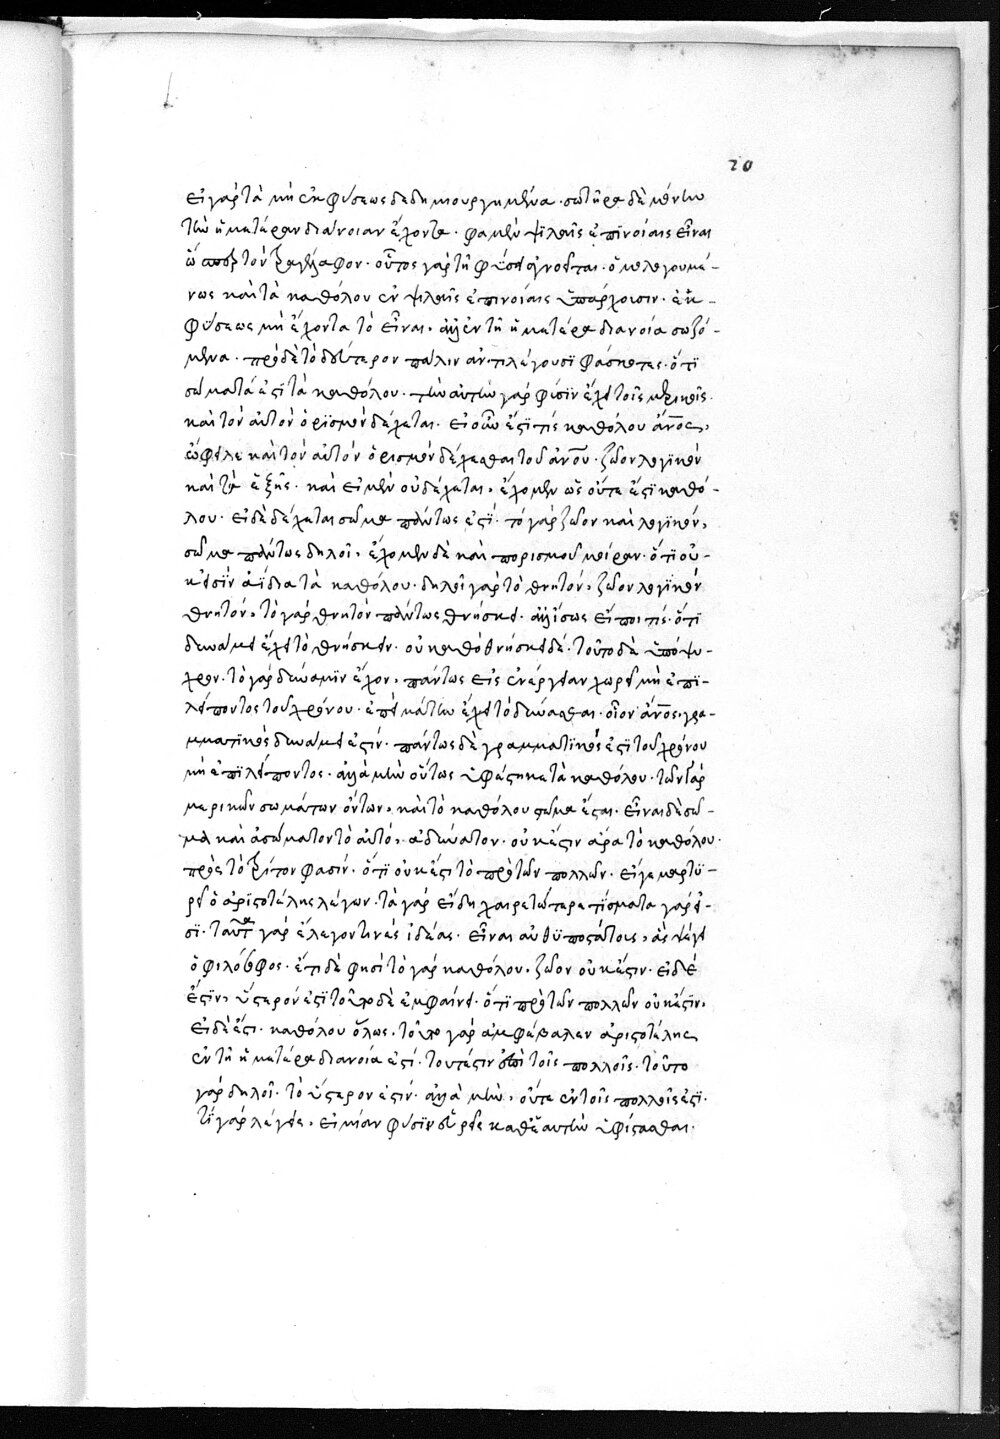 20
εἰ γάρ τὰ μὴ ἐκ φύσεως δεδημιουργημένα · σωτῆρα δὲ μόνην
τὴν ἡμετέραν διάνοιαν ἔχοντα · φαμὲν ψιλαῖς ἐπϊνοίαις εἶναι
ὥσπερ τὸν τραγέλαφον · οὗτος γάρ τῇ φύσει ἀγνοεῖται · ὁμολογουμέ-
νως καὶ τὰ καθόλου ἐν ψιλαῖς ἐπινοίαις ὑπάρχουσιν · ἐκ
φύσεως μὴ ἔχοντα τὸ εἶναι, ἀλλ' ἐν τῇ ἡμετέρα διανοία σωζό-
μενα · πρὸ δὲ τὸ δεύτερον πάλιν ἀντιλέγουσϊ φάσκοντες · ὅτϊ
σώματά ἐστϊ τὰ καθόλου · τὴν αὐτὴν γάρ φύσϊν ἔχει τοῖς μερικοῖς ·
καὶ τὸν αὐτὸν ὁρϊσμὸν δέχεται · εἰ οὖν ἔστϊ τίς καθόλου ἄνος,
ὤφειλε καὶ τὸν αὐτὸν ὁρισμὸν δέχεσθαι τοῦ ἀνου · ζῶον λογϊκὸν
καὶ τὰ ἑξῆς · καὶ εἰ μὲν οὐ δέχεται, ἔχομεν ὡς οὔτε ἔστϊ καθό-
λου · εἰ δὲ δέχεται σῶμα πάντως ἐστϊ · τὸ γάρ ζῶον καὶ λογϊκόν,
σῶμα πάντως δηλοῖ, ἔχομεν δὲ καὶ πορισμοῦ μοίραν · ὅτϊ οὐ-
κ εἰσϊν ἀΐδια τὰ καθόλου · δηλοῖ γάρ τὸ θνητόν, ζῶον λογϊκὸν
θνητόν, τὸ γάρ θνητὸν πάντως θνήσκει · ἀλλ' ἴσως εἴποι τίς · ὅτϊ
δυνάμει ἔχει τὸ θνήσκειν · οὐ καθὸ θνήσκει δέ · τοῦτο δὲ ὑπόψυ-
χρον · τὸ γάρ δύναμϊν ἔχον, πάντως εἰς ἐνέργειαν χωρεῖ μὴ ἐπϊ-
λείποντος τοῦ χρόνου · ἐπεὶ μάτην ἔχει τὸ δύνασθαι · οἷον ἄνος, γρα-
μματϊκὸς δυνάμει ἐστίν · πάντως δὲ γραμματϊκὸς ἐστϊ τοῦ χρόνου
μὴ ἐπϊλείποντος · ἀλλὰ μὴν οὕτως ὑφάστηκε τὰ καθόλου · τῶν γάρ
μερικῶν σωμάτων ὄντων, καὶ τὸ καθόλου σῶμα ἔσται · εἶναι δὲ σῶ-
μα καὶ ἀσώματον τὸ αὐτό, ἀδύνατον · οὐκ ἔστιν ἄρα τὸ καθόλου ·
πρὸς τὸ τρίτον φασίν · ὅτϊ οὐκ ἔστϊ τὸ πρὸ τῶν πολλῶν · εἴγε μαρτϋ-
ρεῖ ὁ ἀριστοτέλης λέγων · τὰ γάρ εἴδη χαιρετώ τερετίσματα γάρ εἰ-
σϊ · ταῦτα γάρ ἔλεγον τινὲς ἰδέας · εἶναι αὐθϋποστάτους, ἃς ψέγει
ὁ φιλόσοφος · ἔτϊ δὲ φησὶ τὸ γάρ καθόλου, ζῶον οὐκ ἔστιν · εἰ δέ
ἐστϊν, ὕστερόν ἐστϊ τοῦτο δὲ ἐμφαίνει · ὅτϊ πρὸ τῶν πολλῶν οὐκ ἔστϊν,
εἰ δὲ ἔστι · καθόλου ὅλως, τοῦτο γάρ ἀμφέβαλεν ἀριστοτέλης
ἐν τῇ ἡμετέρα διανοία ἐστί · τουτέστιν ἐπὶ τοῖς πολλοῖς · τοῦτο
γάρ δηλοῖ · τὸ ὕστερον ἐστίν · ἀλλὰ μὴν, οὔτε ἐν τοῖς πολλοῖς ἐστϊ ·
τί γάρ λέγετε, εἰ μίαν φύσϊν εὕρετε καθ' ἑαυτὴν ὑφίστασθαι ·